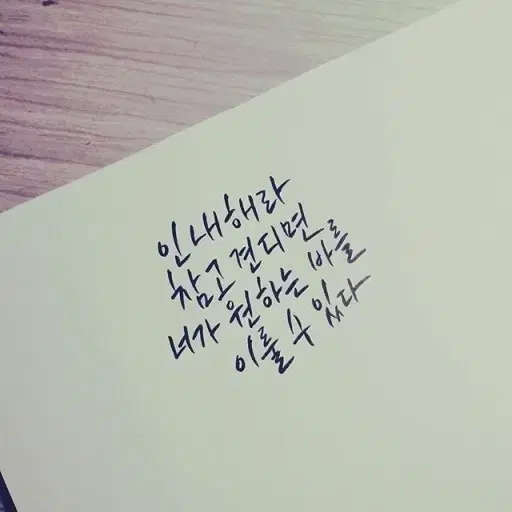 인내해라
참고 견디면
너가 원하는 바를
이룰 수 있다